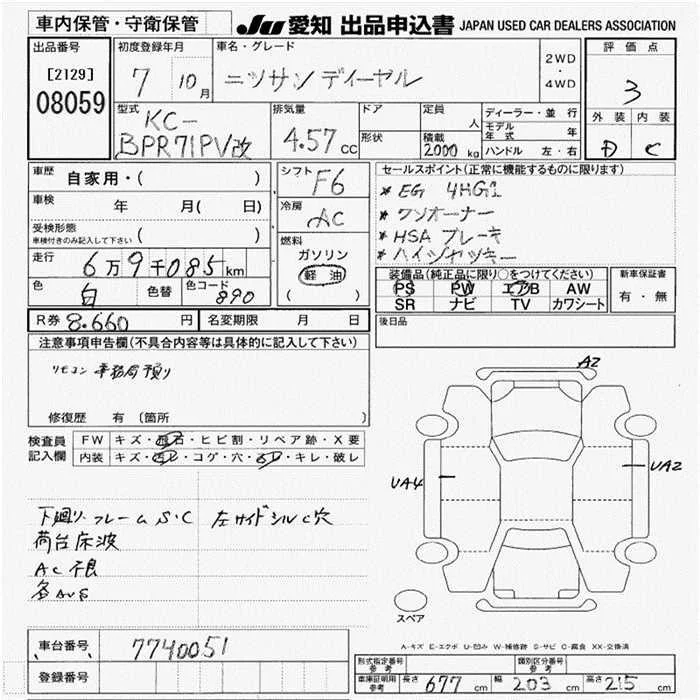 車内保管・守衛保管
JU 愛知 出品申込書 JAPAN USED CAR DEALERS ASSOCIATION
出品番号
[2129]
08059
初度登録年月
7 10月
車名・グレード
ニッサン ディーゼル
2WD
・
4WD
評価点
3
外装 内装
D C
型式
KC-
BPR71PV改
排気量
4.57 cc
ドア
形状
定員
人
積載
2000 kg
ディーラー・並行
モデル年式 年
ハンドル 左・右
車歴 自家用・( )
車検 年 月( 日)
受検形態
車検付きのみ記入して下さい ( )
走行 6万9千085km
色 白 色替 色コード 890
シフト F6
冷房 AC
燃料
ガソリン
軽油
( )
セールスポイント(正常に機能するものに限ります)
* EG 4HG1
* ワンオーナー
* HSA ブレーキ
* ハイジャッキー
装備品(純正品に限り○をつけてください)
PS PW エアB AW
SR ナビ TV カワシート
新車保証書
有・無
R券 8.660 円 名変期限 月 日
後日品
注意事項申告欄(不具合内容等は具体的に記入して下さい)
リモコン 事務局預り
修復歴 有 〔箇所 〕
検査員記入欄
FW キズ・飛石・ヒビ割・リペア跡・X要
内装 キズ・汚レ・コゲ・穴・スレ・キレ・破レ
下廻り・フレーム S・C 左サイドシル C穴
荷台床波
AC 不良
各AUS
A2
UA4
UA2
スペア
A-キズ E-エクボ U-凹み W-補修跡 S-サビ C-腐食 XX-交換済
車台番号 7740051
登録番号
形式指定番号 参考
類別区分番号 参考
車庫証明用 参考 長さ 677 cm 幅 203 cm 高さ 215 cm